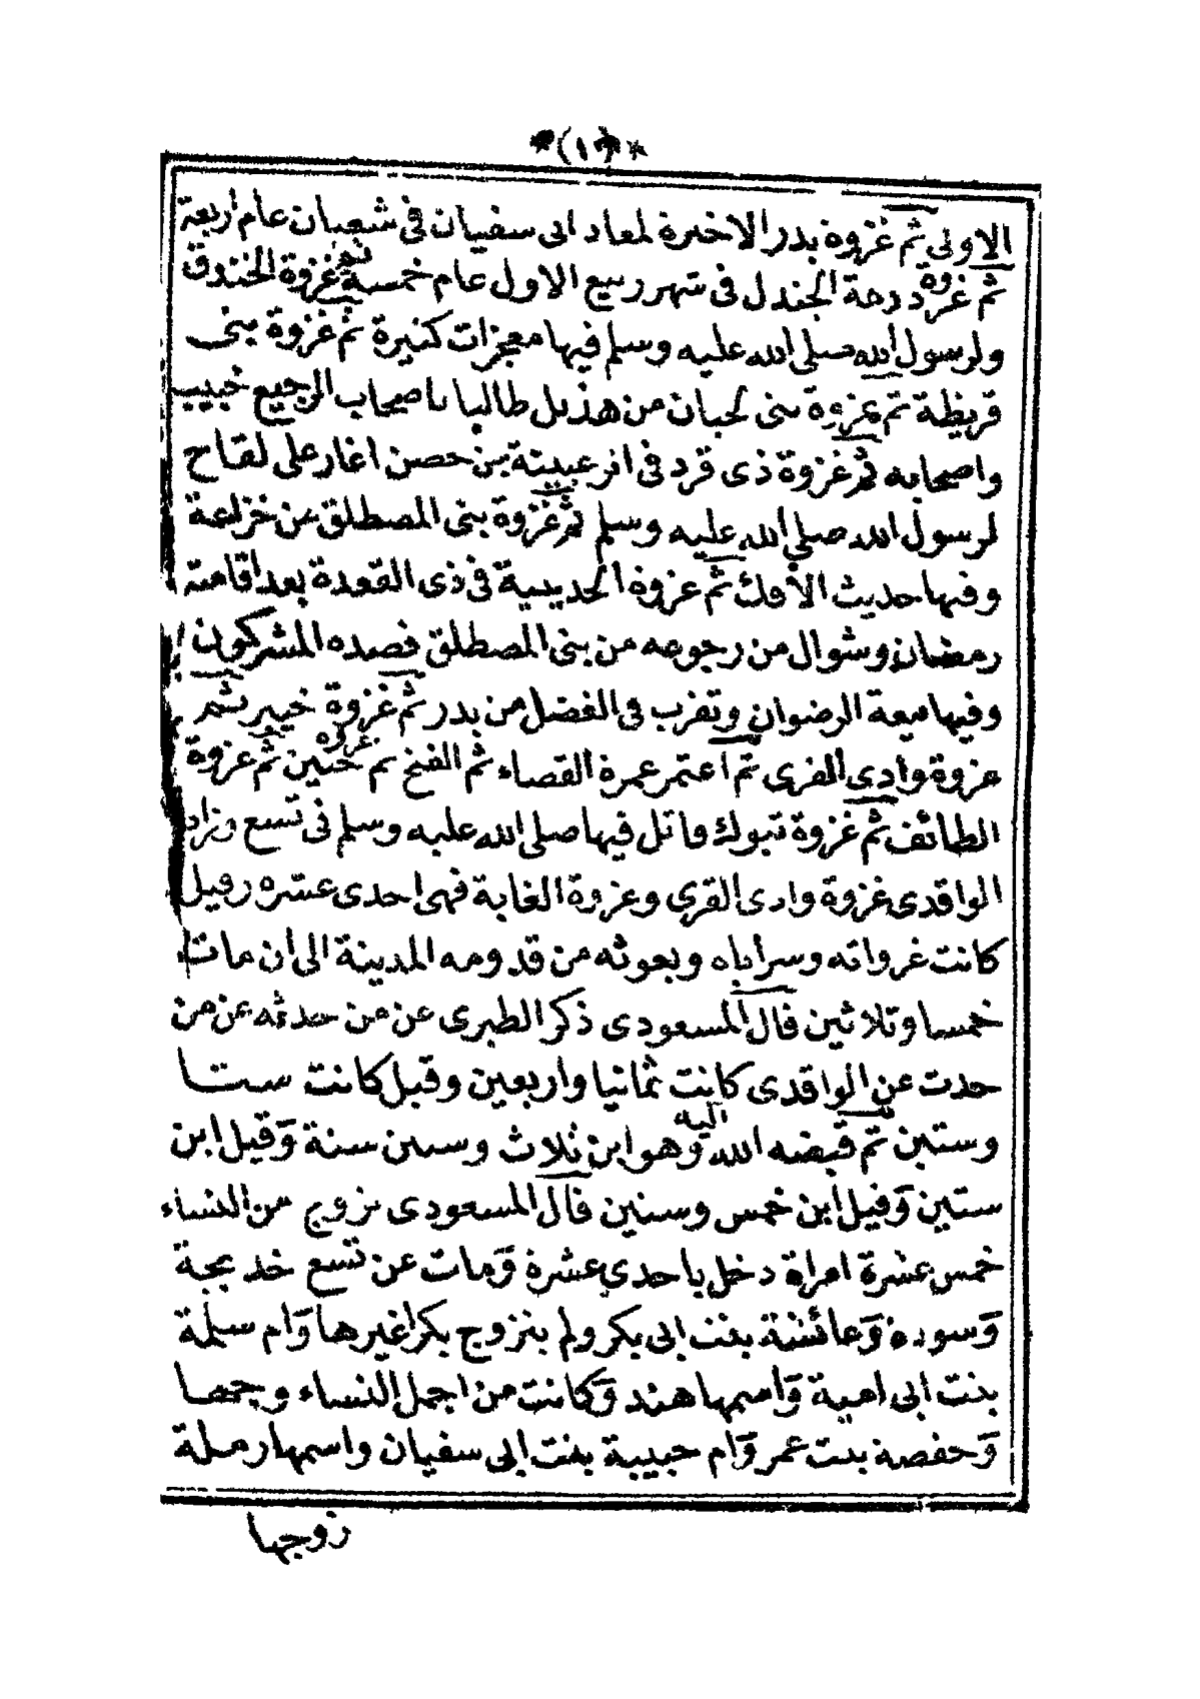 *(١٠)*
الاولى ثم غزوة بدر الاخيرة لمعاد ابى سفيان فى شعبان عام اربعة
ثم غزوة دومة الجندل فى شهر ربيع الاول عام خمسة ثم غزوة الخندق
ولرسول الله صلى الله عليه وسلم فيها معجزات كثيرة ثم غزوة بنى
قريظة ثم غزوة بنى لحيان من هذيل طالبا باصحاب الرجيع خبيب
واصحابه ثم غزوة ذى قرد فى اثر عيينة بن حصن اغار على لقاح
لرسول الله صلى الله عليه وسلم ثم غزوة بنى المصطلق من خزاعة
وفيها حديث الأفك ثم غزوة الحديبية فى ذى القعدة بعد اقامته
رمضان وشوال من رجوعه من بنى المصطلق فصده المشركون
وفيها بيعة الرضوان وتقرب فى الفضل من بدر ثم غزوة خيبر ثم
غزوة وادى القرى ثم اعتمر عمرة القضاء ثم الفتح ثم غزوة حنين ثم غزوة
الطائف ثم غزوة تبوك قاتل فيها صلى الله عليه وسلم فى تسع وزاد
الواقدى غزوة وادى القرى وغزوة الغابة فهى احدى عشره وقيل
كانت غزواته وسراياه وبعوثه من قدومه المدينة الى ان مات
خمسا وثلاثين قال المسعودى ذكر الطبرى عن من حدثه عن من
حدث عن الواقدى كانت ثمانيا واربعين وقيل كانت ستا
وستين ثم قبضه الله اليه وهو ابن ثلاث وستين سنة وقيل ابن
ستين وقيل ابن خمس وستين قال المسعودى تزوج من النساء
خمس عشرة امراة دخل باحدى عشرة ومات عن تسع خديجة
وسودة وعائشة بنت ابى بكر ولم يتزوج بكرا غيرها وام سلمة
بنت ابى امية واسمها هند وكانت من اجمل النساء وجها
وحفصة بنت عمر وام حبيبة بنت ابى سفيان واسمها رملة
زوجها